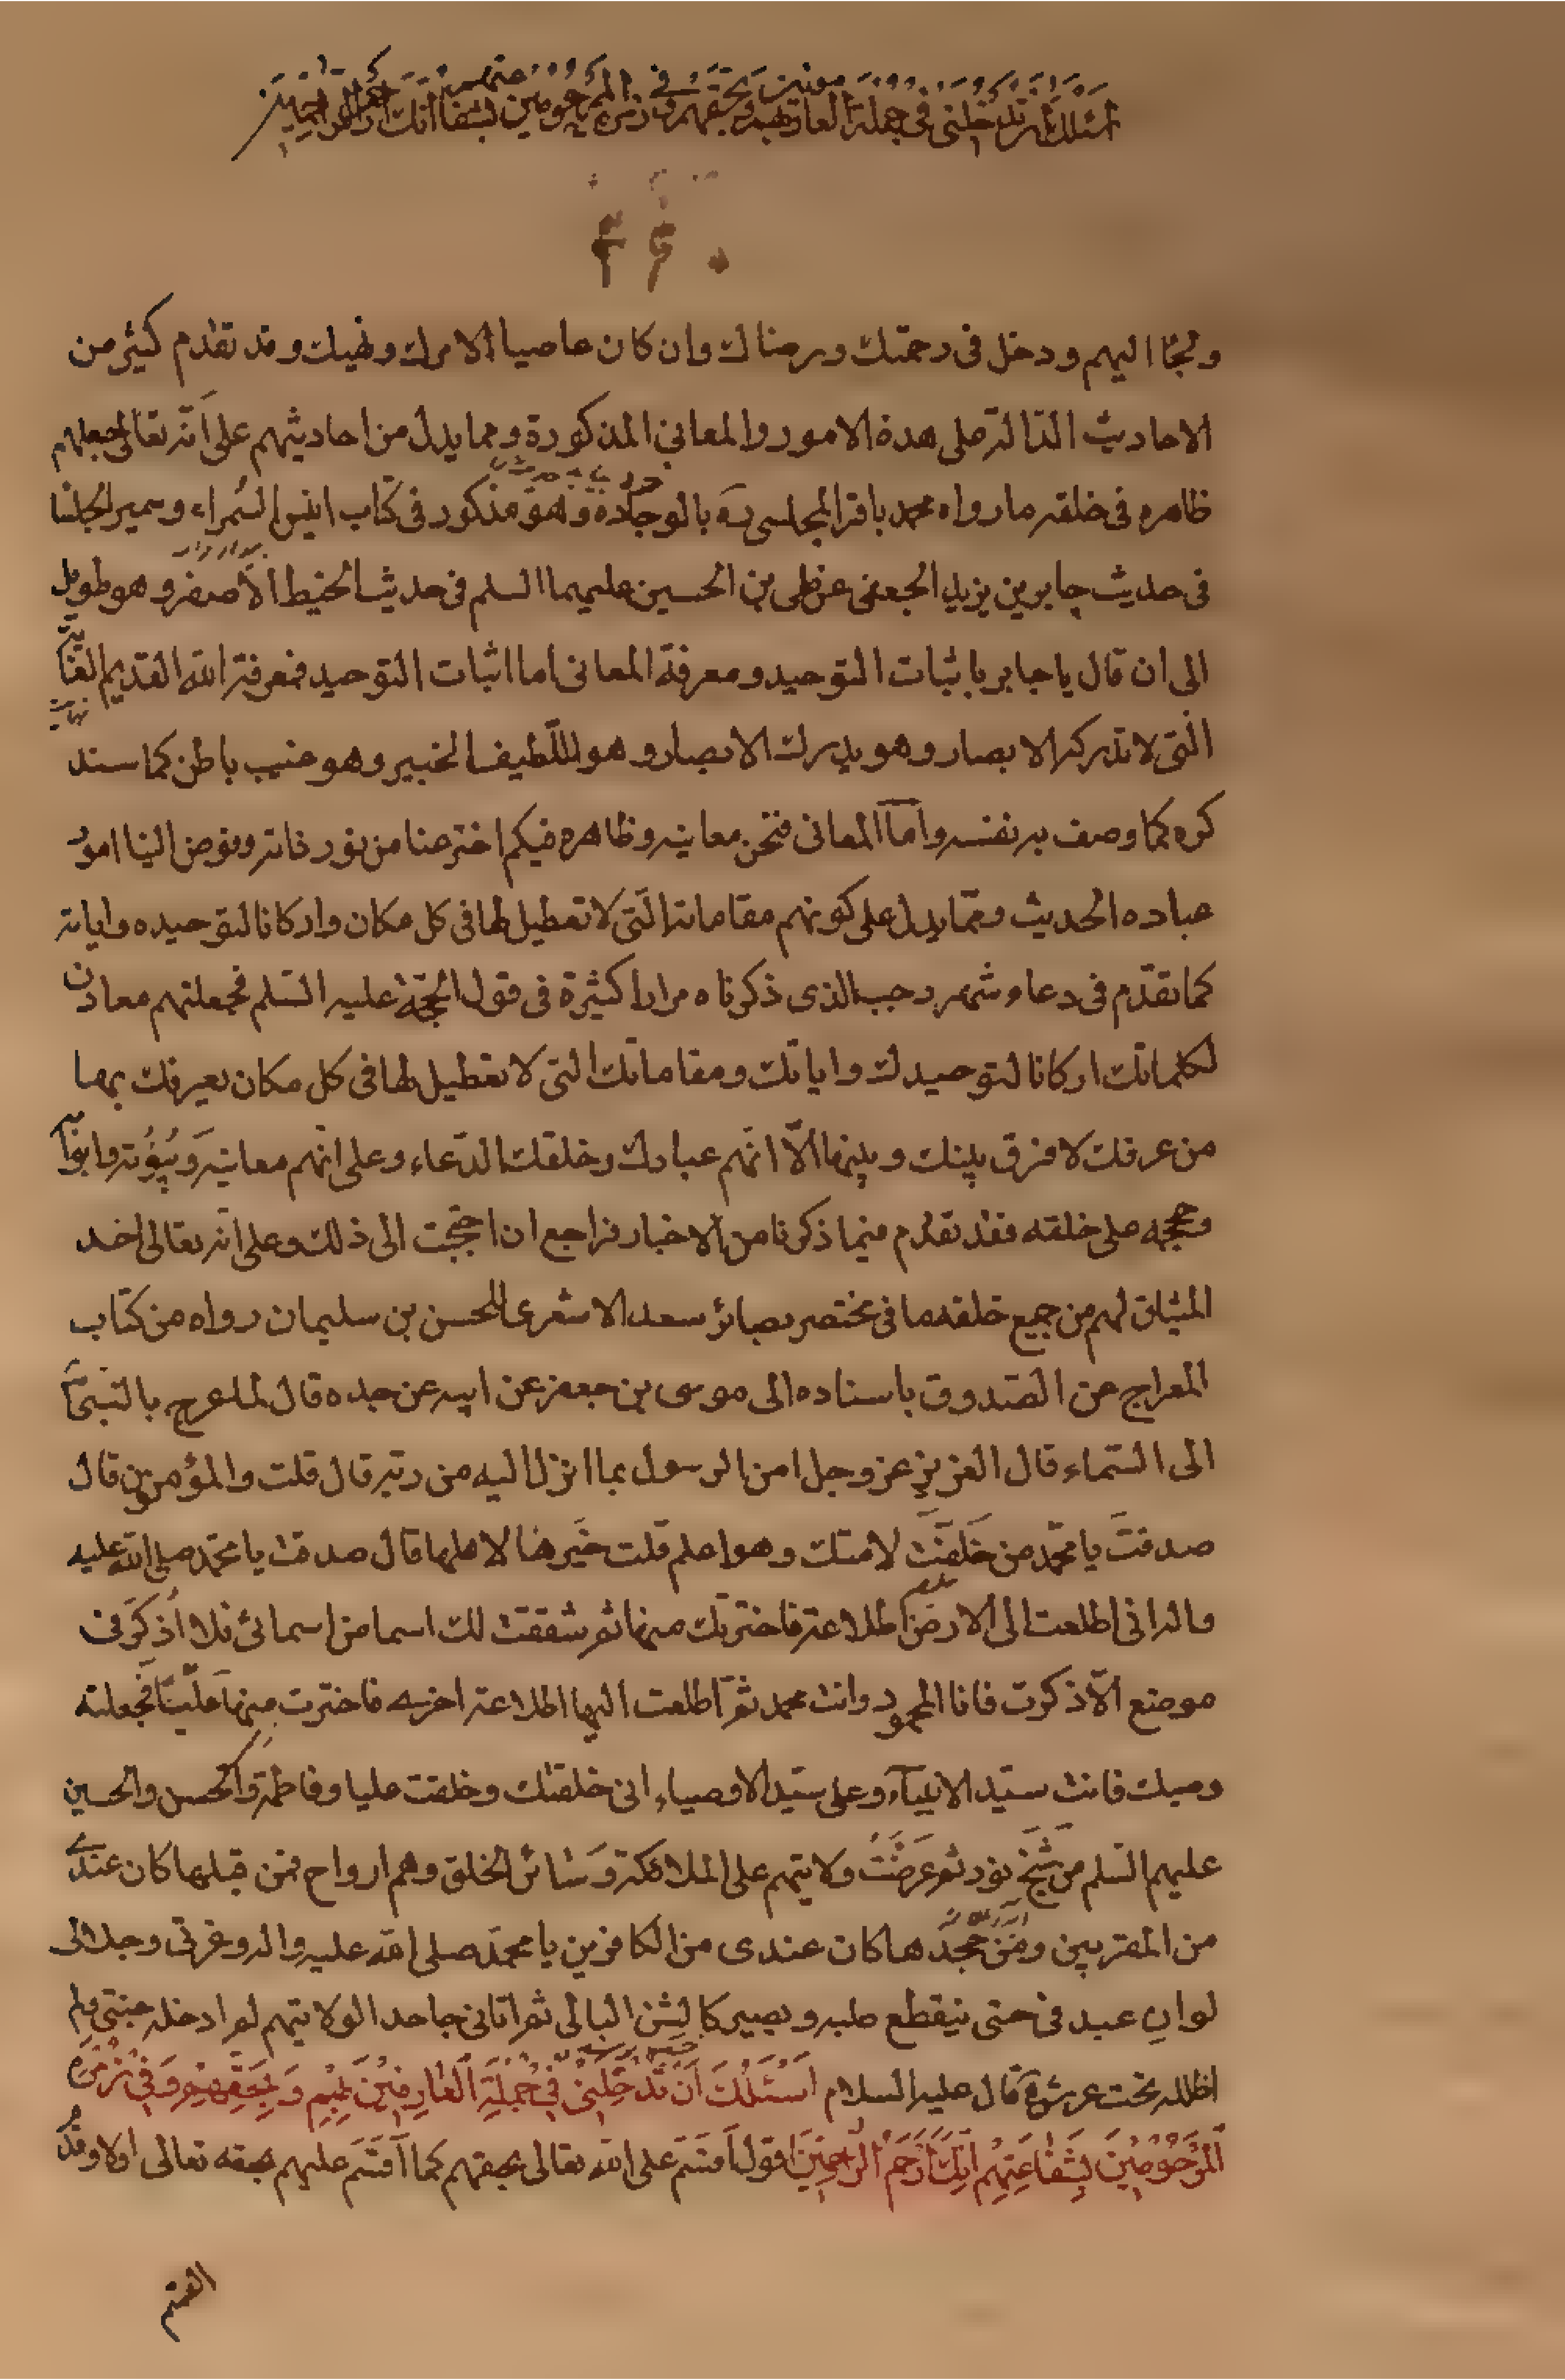 اسئلك ان تدخلنى فى جملة العارفين بهم وبحقهم وفى زمرة المرحومين بشفاعتهم انك ارحم الراحمين
ولجأ اليهم ودخل فى رحمتك ورضاك وان كان عاصيا لامرك ونهيك وقد تقدم كثير من
الاحاديث الدّالة على هذه الامور والمعانى المذكورة ومما يدل من احاديثهم على انّه تعالى جعلهم
ظاهره فى خلقه ما رواه محمد باقر المجلسى ره بالوجادة وهو مذكور فى كتاب انيس السُمراء وسمير الجلسا
فى حديث جابر بن يزيد الجعفى عن على بن الحسين عليهما السلم فى حديث الخيط الأصفر وهو طويل
الى ان قال يا جابر باثبات التوحيد ومعرفة المعانى اما اثبات التوحيد فمعرفة الله القديم الغا
التى لا تدركه الابصار وهو يدرك الابصار وهو اللّطيف الخبير وهو غيب باطن كما سند
كره كما وصف به نفسه وامّا المعانى فنحن معانيه وظاهره فيكم اخترعنا من نور ذاته وفوض الينا امور
عباده الحديث وممّا يدل على كونهم مقاماته الّتى لا تعطيل لها فى كل مكان واركانا لتوحيده واياته
كما تقدّم فى دعاء شهر رجب الذى ذكرناه مرارا كثيرة فى قول الحجّة عليه السّلم فجعلتهم معادن
لكلماتك اركانا لتوحيدك واياتك ومقاماتك التى لا تعطيل لها فى كل مكان يعرفك بها
من عرفك لا فرق بينك وبينها الّا انّهم عبادك وخلقك الدّعاء وعلى انّهم معانيه وبُيُوته وابوابه
وحججه على خلقه فقد تقدم فيما ذكرنا من الاخبار فراجع ان احتجت الى ذلك وعلى انّه تعالى اخذ
الميثاق لهم من جميع خلقه ما فى مختصر بصائر سعد الاشعرى للحسن بن سليمان رواه من كتاب
المعراج عن الصّدوق باسناده الى موسى بن جعفر عن ابيه عن جده قال لما عرج بالنّبى ص
الى السّماء قال العزيز عز وجل امن الرسول بما انزل اليه من ربّه قال قلت والمؤمنون قال
صدقتَ يا محمّد من خَلّفْتَ لامتك وهو اعلم قلت خَيرها لاهلها قال صدقت يا محمّد صلى الله عليه
واله انى اطلعت الى الارض اطلاعة فاخترتك منها ثم شققت لك اسما من اسمائى فلا اُذكَر فى
موضع الّا ذكرت فانا المحمود وانت محمد ثمّ اطلعت اليها اطلاعة اخرى فاخترت منها عليّا فجعلته
وصيك فانت سيّد الانبيآء وعلى سيّد الاوصياء انى خلقتك وخلقت عليا وفاطمة والحسن والحسين
عليهم السّلم من شَبَح نور ثم عرضْتُ ولايتهم على الملائكة وسائر الخلق وهم ارواح فمن قبلها كان عندى
من المقربين ومَن جحدها كان عندى من الكافرين يا محمّد صلى الله عليه واله وعزتى وجلالى
لو ان عبد فى حتى ينقطع ويصير كالشن البالى ثم اتانى جاحدا لولايتهم لم ادخله جنتى ولم
اظلله تحت عرشى قال عليه السلام اَسْئَلُكَ اَنْ تُدْخِلَنى فى جُمْلَةِ العارِفينَ بِهِمْ وَبِحَقِّهِمْ وَفى زُمْرَةِ
المَرْحُومينَ بِشَفاعَتِهِمْ اِنَّكَ اَرْحَمُ الرّاحِمينَ اقول اَقسَمَ على الله تعالى بحقهم كما اَقسَمَ عليهم بحقه تعالى اولا وقد
القسم